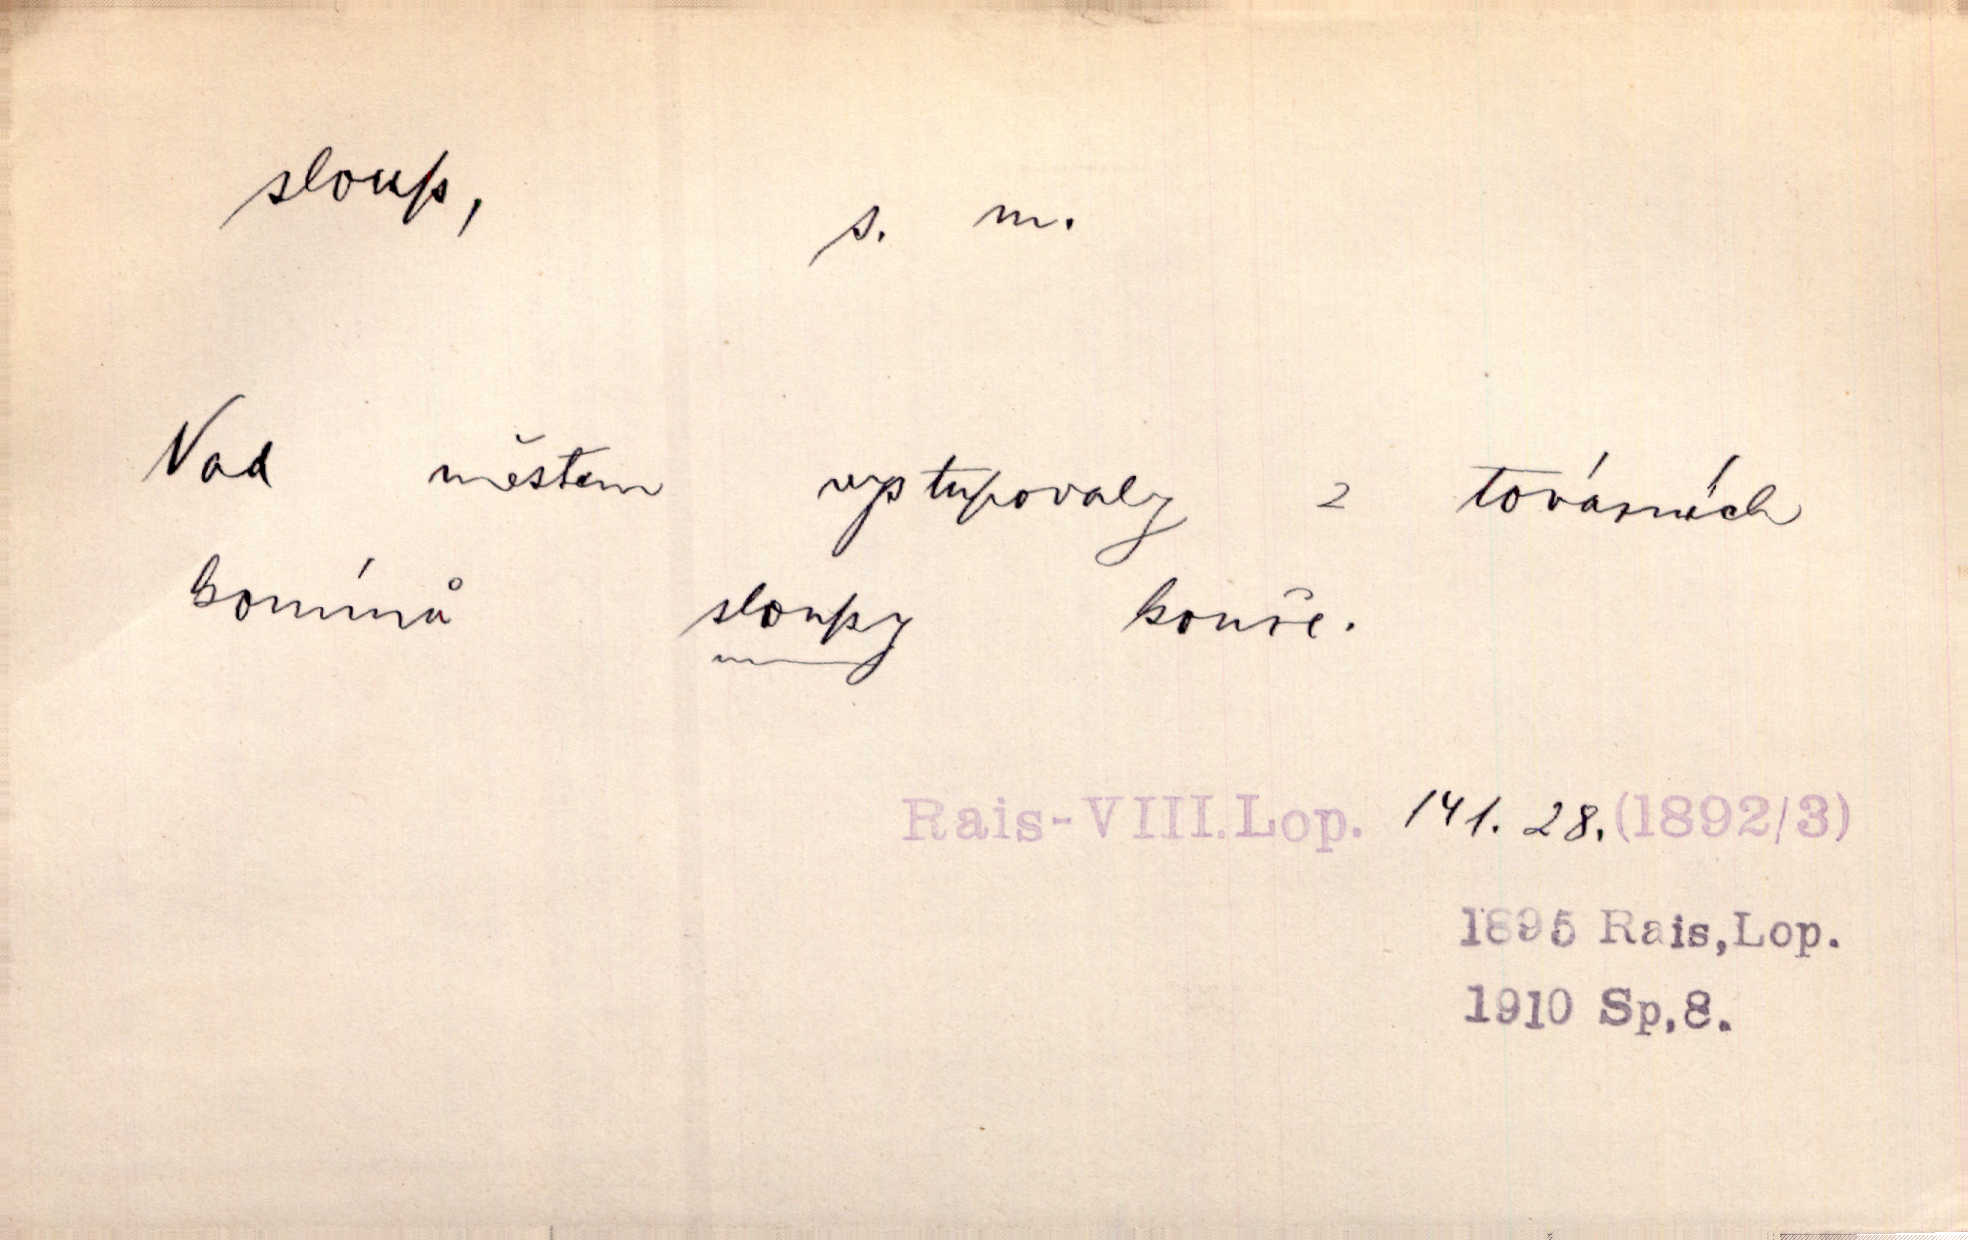 sloup, s. m.
Nad městem vystupovaly z továrních
komínů sloupy kouře.
Rais-VIII.Lop. 141. 28. (1892/3)
1895 Rais,Lop.
1910 Sp,8.